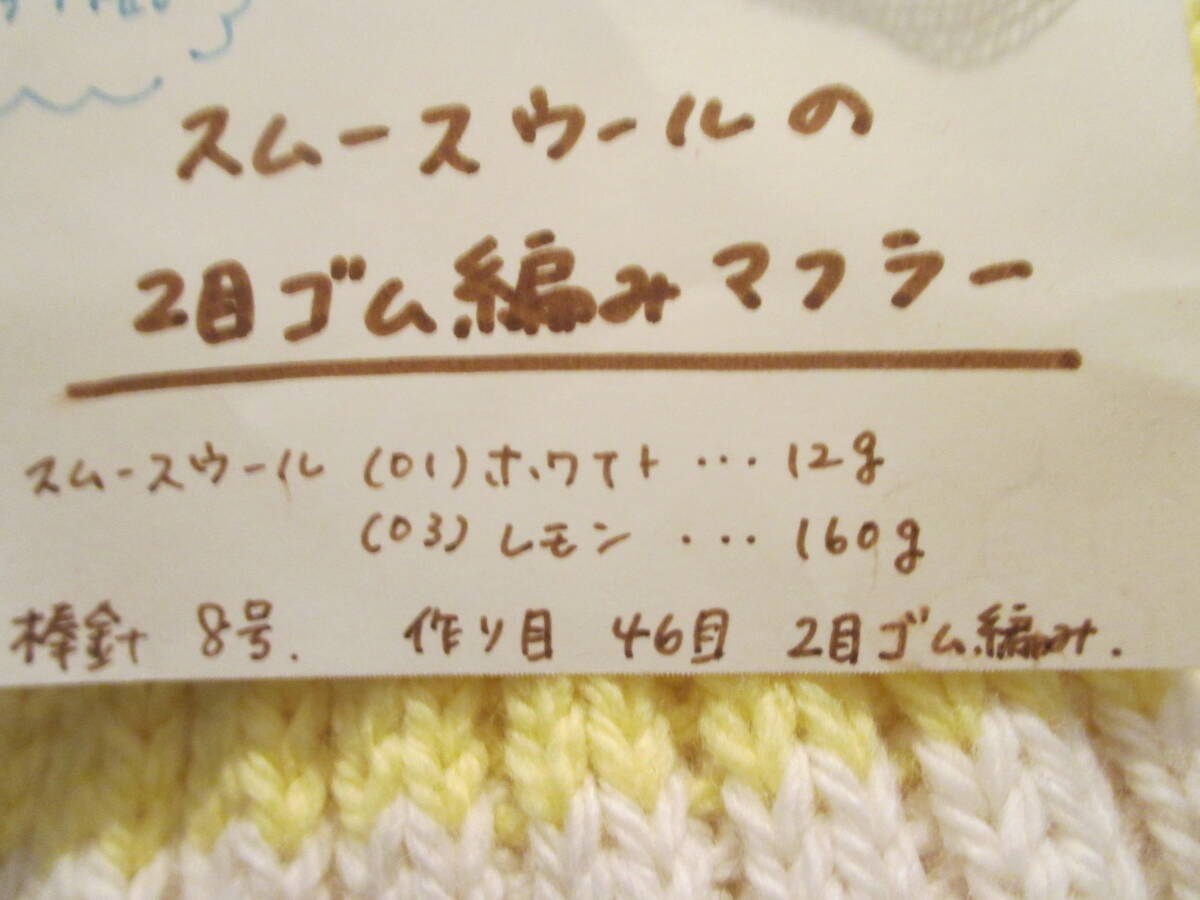 スムースウールの
2目ゴム編みマフラー
スムースウール (01)ホワイト ・・・ 12g
(03)レモン ・・・ 160g
棒針 8号. 作り目 46目 2目ゴム編み.